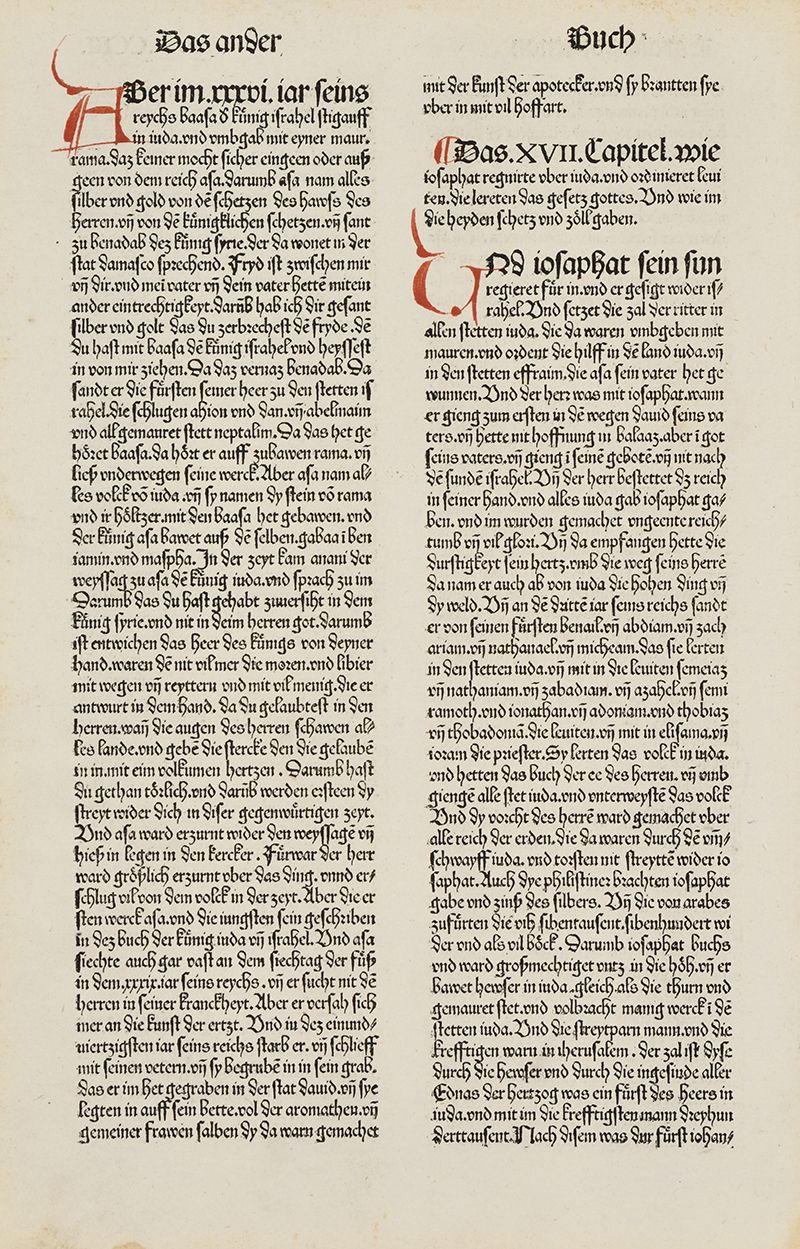 Das ander Buch
ABer im .xxxvi. iar seins
reychs baasa d̄ ku̇nig israhel stigauff
in iuda.vnd vmbgab mit eyner maur.
rama.daz keiner mocht sicher eingeen oder auß
geen von dem reich asa.darumb asa nam alles
silber vnd gold von dē schetzen des hawss des
herren.vn̄ von dē ku̇nigklichen schetzen.vn̄ sant
zu benadab dez ku̇nig syrie.der da wonet in der
stat damasco sprechend. Fryd ist zwischen mir
vn̄ dir.vnd mei vater vn̄ dein vater hettē mitein
ander eintrechtigkeyt.darūb hab ich dir gesant
silber vnd golt das du zerbrechest dē fryde .dē
du hast mit baasa dē ku̇nig israhel vnd heyssest
in von mir ziehen. Da daz vernaz benadab. Da
sandt er die fu̇rsten seiner heer zu den stetten is
rahel.die schlugen ahion vnd dan.vn̄ abelmaim
vnd all gemauret stett neptalim. Da das het ge
ho̊ret baasa.da ho̊rt er auff zubawen rama. vn̄
ließ vnderwegen seine werck. Aber asa nam al/
les volck vō iuda .vn̄ sy namen dy stein vō rama
vnd ir ho̊ltzer.mit den baasa het gebawen. vnd
der ku̇nig asa bawet auß dē selben.gabaa ī ben
iamin.vnd maspha. In der zeyt kam anani der
weyssag zu asa dē ku̇nig iuda.vnd sprach zu im
Darumb das du hast gehabt zuuersiht in dem
ku̇nig syrie.vnd nit in deim herren got.darumb
ist entwichen das heer des ku̇nigs von deyner
hand.waren dē nit vil mer die moren.vnd libier
mit wegen vn̄ reyttern vnd mit vil menig.die er
antwurt in dem hand. da du gelaubtest in den
herren.wan̄ die augen des herren schawen al/
les lande.vnd gebē die stercke den die gelaubē
in in.mit eim volkumen hertzen . Darumb hast
du gethan to̊rlich.vnd darūb werden ersteen dy
streyt wider dich in diser gegenwu̇rtigen zeyt.
Vnd asa ward erzurnt wider den weyssagē vn̄
hieß in legen in den kercker . Fu̇rwar der herr
ward gro̊ßlich erzurnt vber das ding. vnnd er/
schlug vil von dem volck in der zeyt. Aber die er
sten werck asa.vnd die iungsten sein geschriben
in dez buch der ku̇nig iuda vn̄ israhel. Vnd asa
siechte auch gar vast an dem siechtag der fu̇ß
in dem.xxxix.iar seins reychs . vn̄ er sucht nit dē
herren in seiner kranckheyt. Aber er versah sich
mer an die kunst der ertzt. Vnd in dez einund/
uiertzigsten iar seins reichs starb er. vn̄ schlieff
mit seinen vetern.vn̄ sy begrubē in in sein grab.
das er im het gegraben in der stat dauid.vn̄ sye
legten in auff sein bette.vol der aromathen.vn̄
gemeiner frawen salben dy da warn gemachet
mit der kunst der apotecker.vnd sy brantten sye
vber in mit vil hoffart.
¶Das .XVII. Capitel. wie
iosaphat regnirte vber iuda.vnd ordinieret leui
ten.die lereten das gesetz gottes. Vnd wie im
die heyden schetz vnd zo̊ll gaben.
VNd iosaphat sein sun
regieret fu̇r in.vnd er gesigt wider is/
rahel. Vnd setzet die zal der ritter in
allen stetten iuda. die da waren vmbgeben mit
mauren.vnd ordent die hilff in dē land iuda.vn̄
in den stetten effraim.die asa sein vater het ge
wunnen. Vnd der herr was mit iosaphat.wann
er gieng zum ersten in dē wegen dauid seins va
ters.vn̄ hette nit hoffnung in balaaz.aber ī got
seins vaters.vn̄ gieng ī seinē gebotē.vn̄ nit nach
dē sundē israhel. Vn̄ der herr bestettet dz reich
in seiner hand.vnd alles iuda gab iosaphat ga/
ben. vnd im wurden gemachet vngeente reich/
tumb vn̄ vil glori. Vn̄ da empfangen hette die
durstigkeyt sein hertz.vmb die weg seins herrē
da nam er auch ab von iuda die hohen ding vn̄
dy weld. Vn̄ an dē dritte iar seins reichs sandt
er von seinen fu̇rsten benail.vn̄ abdiam.vn̄ zach
ariam.vn̄ nathanael.vn̄ micheam.das sie lerten
in den stetten iuda.vn̄ mit in die leuiten semeiaz
vn̄ nathaniam.vn̄ zabadiam. vn̄ azahel.vn̄ semi
ramoth.vnd ionathan.vn̄ adoniam.vnd thobiaz
vn̄ thobadoniā.die leuiten.vn̄ mit in elisama.vn̄
ioram die priester. Sy lerten das volck in iuda.
vnd hetten das buch der ee des herren. vn̄ vmb
giengē alle stet iuda.vnd vnterweystē das volck
Vnd dy vorcht des herrē ward gemachet vber
alle reich der erden.die da waren durch dē vm̄/
schwayff iuda. vnd torsten nit streyttē wider io
saphat. Auch dye philistiner brachten iosaphat
gabe vnd zinß des silbers. Vn̄ die von arabes
zufu̇rten die vih sibentausent.sibenhundert wi
der vnd als vil bo̊ck. Darumb iosaphat buchs
vnd ward großmechtiget vntz in die ho̊h.vn̄ er
bawet hewser in iuda .gleich als die thurn vnd
gemauret stet.vnd volbracht manig werck ī dē
stetten iuda. Vnd die streytparn mann.vnd die
krefftigen warn in iherusalem . der zal ist dyse
durch die hewser vnd durch die ingesinde aller
Ednas der hertzog was ein fu̇rst des heers in
iuda.vnd mit im die krefftigsten mann dreyhun
derttausent. Nach disem was der fu̇rst iohan/